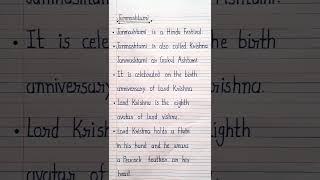 Janmashtami
• Janmashtami is a Hindu Festival.
• Janmashtami is also called Krishna
Janmashtami or Gokul Ashtami
• It is celebrated on the birth
anniversary of Lord Krishna.
• Lord Krishna is the eighth
avatar of lord vishnu.
• Lord Krishna holds a flute
in his hand and he wears
a Peacock feather on his
head.
• It is
anniversary
• Lord Krish
birth
shna.
ghth